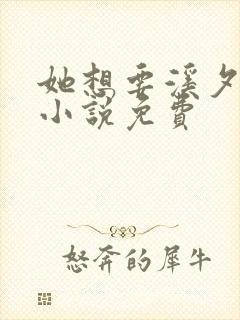 她想要溪夕
小说免费
怒奔的犀牛